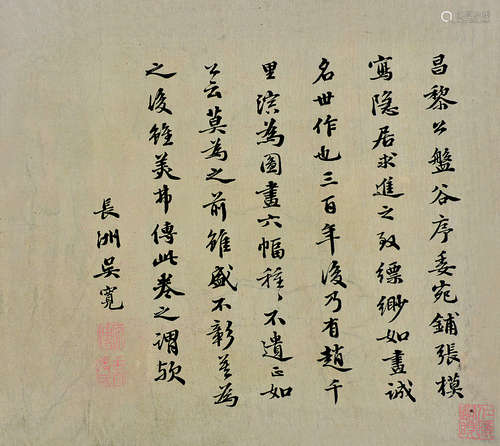 昌黎公盤谷序委宛鋪張模
寫隐居求進之致縹緲如畫誠
名世作也三百年後乃有趙千
里淙為圖畫六幅種〻不遺正如
公云莫為之前雖盛不彰莫為
之後雖美弗傳此卷之謂欤
長洲吳寬